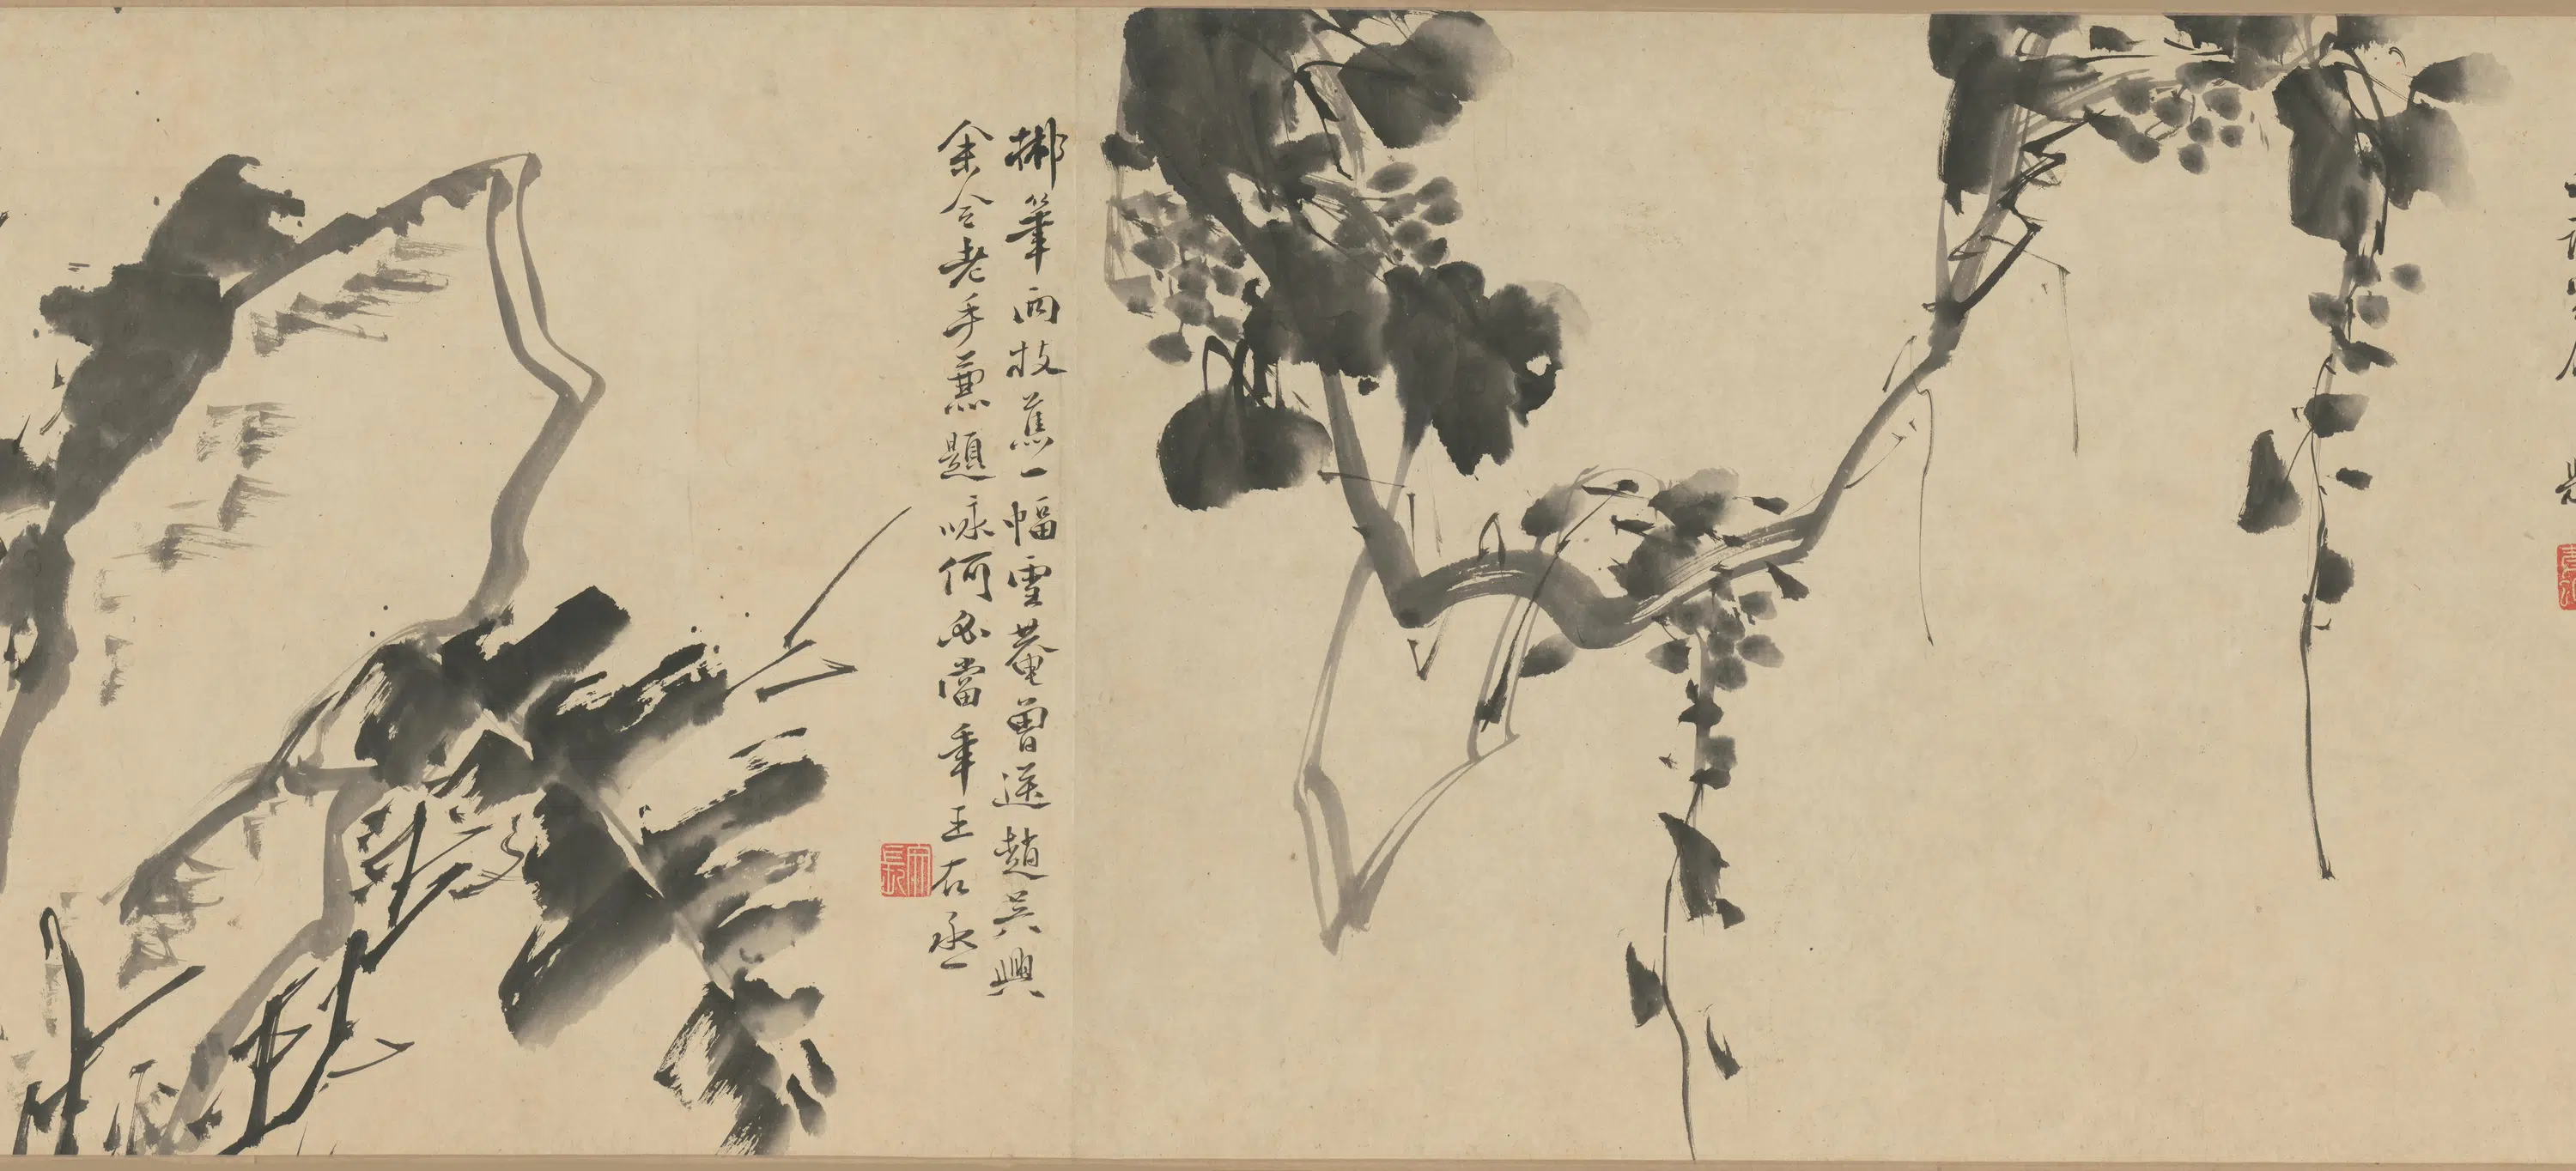 筆兩枝蕉一幅雪菴曾送趙吳興
余今老手兼題咏何必當年王右丞